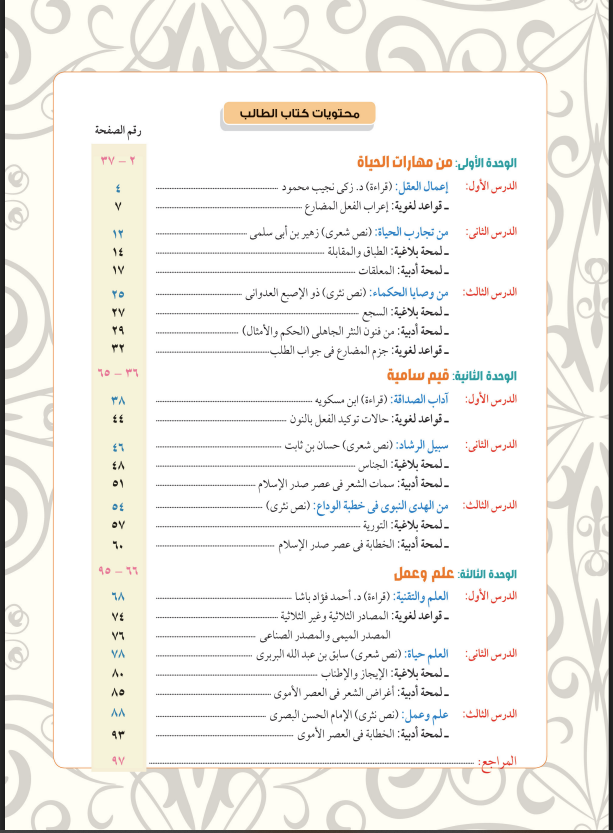 محتويات كتاب الطالب
رقم الصفحة
الوحدة الأولى: من مهارات الحياة ٢ – ٣٧
الدرس الأول: إعمال العقل: (قراءة) د. زكى نجيب محمود ٤
ـ قواعد لغوية: إعراب الفعل المضارع ٧
الدرس الثانى: من تجارب الحياة: (نص شعرى) زهير بن أبى سلمى ١٢
ـ لمحة بلاغية: الطباق والمقابلة ١٤
ـ لمحة أدبية: المعلقات ١٧
الدرس الثالث: من وصايا الحكماء: (نص نثرى) ذو الإصبع العدوانى ٢٥
ـ لمحة بلاغية: السجع ٢٧
ـ لمحة أدبية: من فنون النثر الجاهلى (الحكم والأمثال) ٢٩
ـ قواعد لغوية: جزم المضارع فى جواب الطلب ٣٢
الوحدة الثانية: قيم سامية ٣٦ – ٦٥
الدرس الأول: آداب الصداقة: (قراءة) ابن مسكويه ٣٨
ـ قواعد لغوية: حالات توكيد الفعل بالنون ٤٤
الدرس الثانى: سبيل الرشاد: (نص شعرى) حسان بن ثابت ٤٦
ـ لمحة بلاغية: الجناس ٤٨
ـ لمحة أدبية: سمات الشعر فى عصر صدر الإسلام ٥١
الدرس الثالث: من الهدى النبوى فى خطبة الوداع: (نص نثرى) ٥٤
ـ لمحة بلاغية: التورية ٥٧
ـ لمحة أدبية: الخطابة فى عصر صدر الإسلام ٦٠
الوحدة الثالثة: علم وعمل ٦٦ – ٩٥
الدرس الأول: العلم والتقنية: (قراءة) د. أحمد فؤاد باشا ٦٨
ـ قواعد لغوية: المصادر الثلاثية وغير الثلاثية ٧٤
المصدر الميمى والمصدر الصناعى ٧٦
الدرس الثانى: العلم حياة: (نص شعرى) سابق بن عبد الله البربرى ٧٨
ـ لمحة بلاغية: الإيجاز والإطناب ٨٠
ـ لمحة أدبية: أغراض الشعر فى العصر الأموى ٨٥
الدرس الثالث: علم وعمل: (نص نثرى) الإمام الحسن البصرى ٨٨
ـ لمحة أدبية: الخطابة فى العصر الأموى ٩٣
المراجع: ٩٧